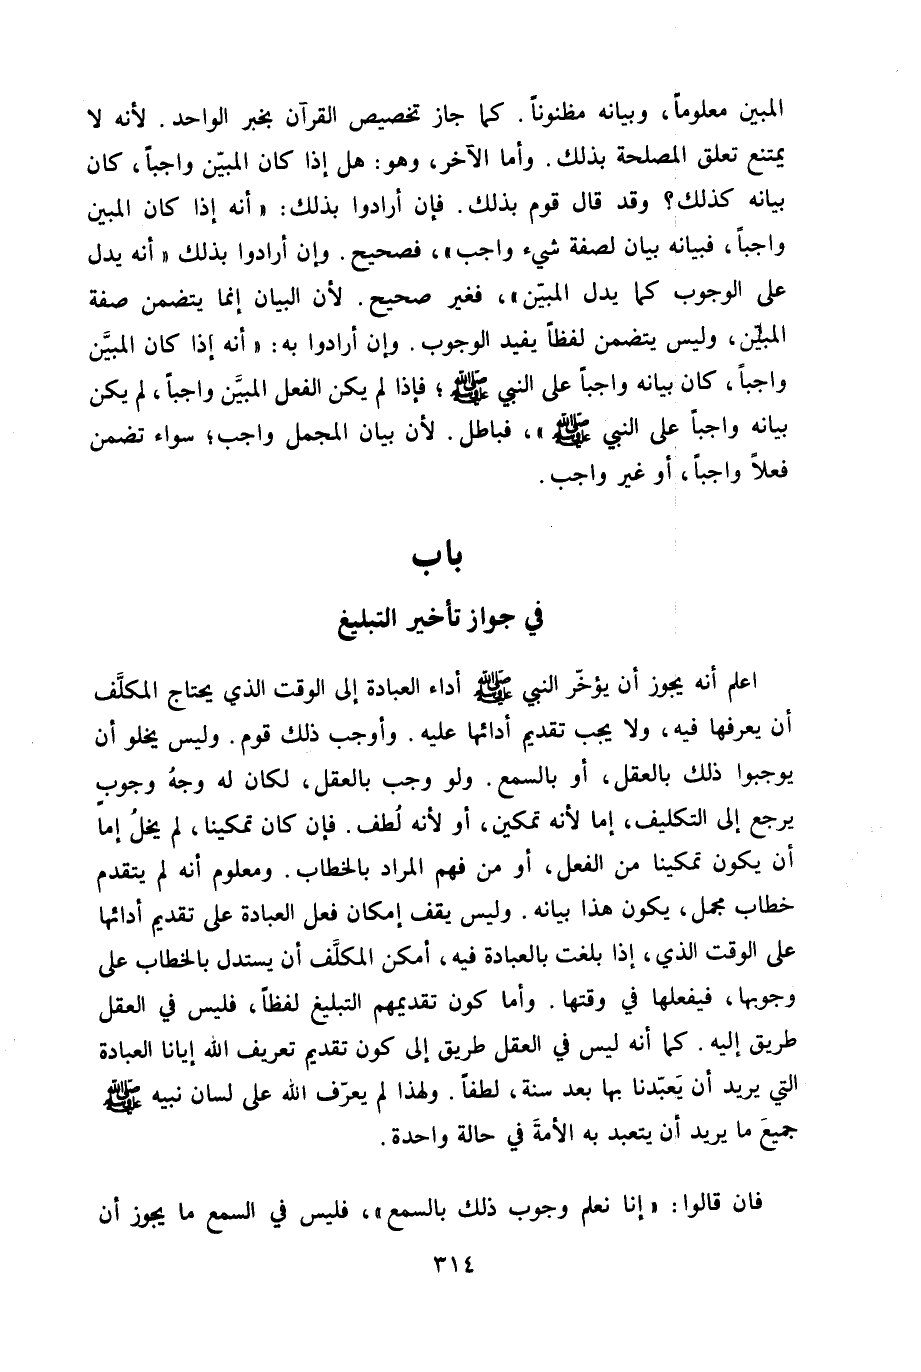 المبين معلوماً، وبيانه مظنوناً. كما جاز تخصيص القرآن بخبر الواحد. لأنه لا
يمتنع تعلق المصلحة بذلك. وأما الآخر، وهو: هل إذا كان المبيّن واجباً، كان
بيانه كذلك؟ وقد قال قوم بذلك. فإن أرادوا بذلك: « أنه إذا كان المبين
واجباً، فبيانه بيان لصفة شيء واجب»، فصحيح. وإن أرادوا بذلك « أنه يدل
على الوجوب كما يدل المبيّن»، فغير صحيح. لأن البيان إنما يتضمن صفة
المبيّن، وليس يتضمن لفظاً يفيد الوجوب. وإن أرادوا به: « أنه إذا كان المبيَّن
واجباً، كان بيانه واجباً على النبي ﷺ؛ فإذا لم يكن الفعل المبيَّن واجباً، لم يكن
بيانه واجباً على النبي ﷺ »، فباطل. لأن بيان المجمل واجب؛ سواء تضمن
فعلاً واجباً، أو غير واجب.
باب
في جواز تأخير التبليغ
اعلم أنه يجوز أن يؤخّر النبي ﷺ أداء العبادة إلى الوقت الذي يحتاج المكلَّف
أن يعرفها فيه، ولا يجب تقديم أدائها عليه. وأوجب ذلك قوم. وليس يخلو أن
يوجبوا ذلك بالعقل، أو بالسمع. ولو وجب بالعقل، لكان له وجهُ وجوبٍ
يرجع إلى التكليف، إما لأنه تمكين، أو لأنه لُطف. فإن كان تمكينا، لم يخلُ إما
أن يكون تمكينا من الفعل، أو من فهم المراد بالخطاب. ومعلوم أنه لم يتقدم
خطاب مجمل، يكون هذا بيانه. وليس يقف إمكان فعل العبادة على تقديم أدائها
على الوقت الذي، إذا بلغت بالعبادة فيه، أمكن المكلَّف أن يستدل بالخطاب على
وجوبها، فيفعلها في وقتها. وأما كون تقديمهم التبليغ لفظاً، فليس في العقل
طريق إليه. كما أنه ليس في العقل طريق إلى كون تقديم تعريف الله إيانا العبادة
التي يريد أن يَعبّدنا بها بعد سنة، لطفاً. ولهذا لم يعرّف الله على لسان نبيه ﷺ
جميعَ ما يريد أن يتعبد به الأمةَ في حالة واحدة.
فان قالوا: « إنا نعلم وجوب ذلك بالسمع»، فليس في السمع ما يجوز أن
٣١٤